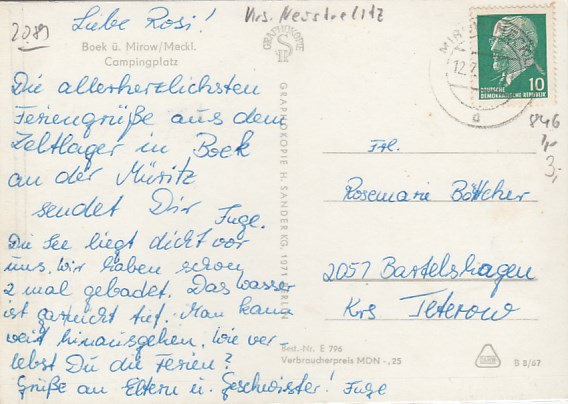 2089
Liebe Rosi!
Krs. Neustrelitz
Boek ü. Mirow/Meckl.
Campingplatz
Die allerherzlichsten
Feriengrüße aus dem
Zeltlager in Boek
an der Müritz
sendet Dir Inge.
Die See liegt dicht vor
uns. Wir haben schon
2 mal gebadet. Das Wasser
ist gar nicht tief. Man kann
weit hinausgehen. Wie ver-
lebst Du die Ferien?
Grüße an Eltern u. Geschwister! Inge
GRAPHOKOPIE
GRAPHOKOPIE H. SANDER KG, 1071 BERLIN
Best.-Nr. E 796
Verbraucherpreis MDN -,25
MIROW
12.7
a
10
DEUTSCHE
DEMOKRATISCHE REPUBLIK
846
1,-
3,-
Frl.
Rosemarie Böttcher
2051 Bartelshagen
Krs Teterow
B 8/67